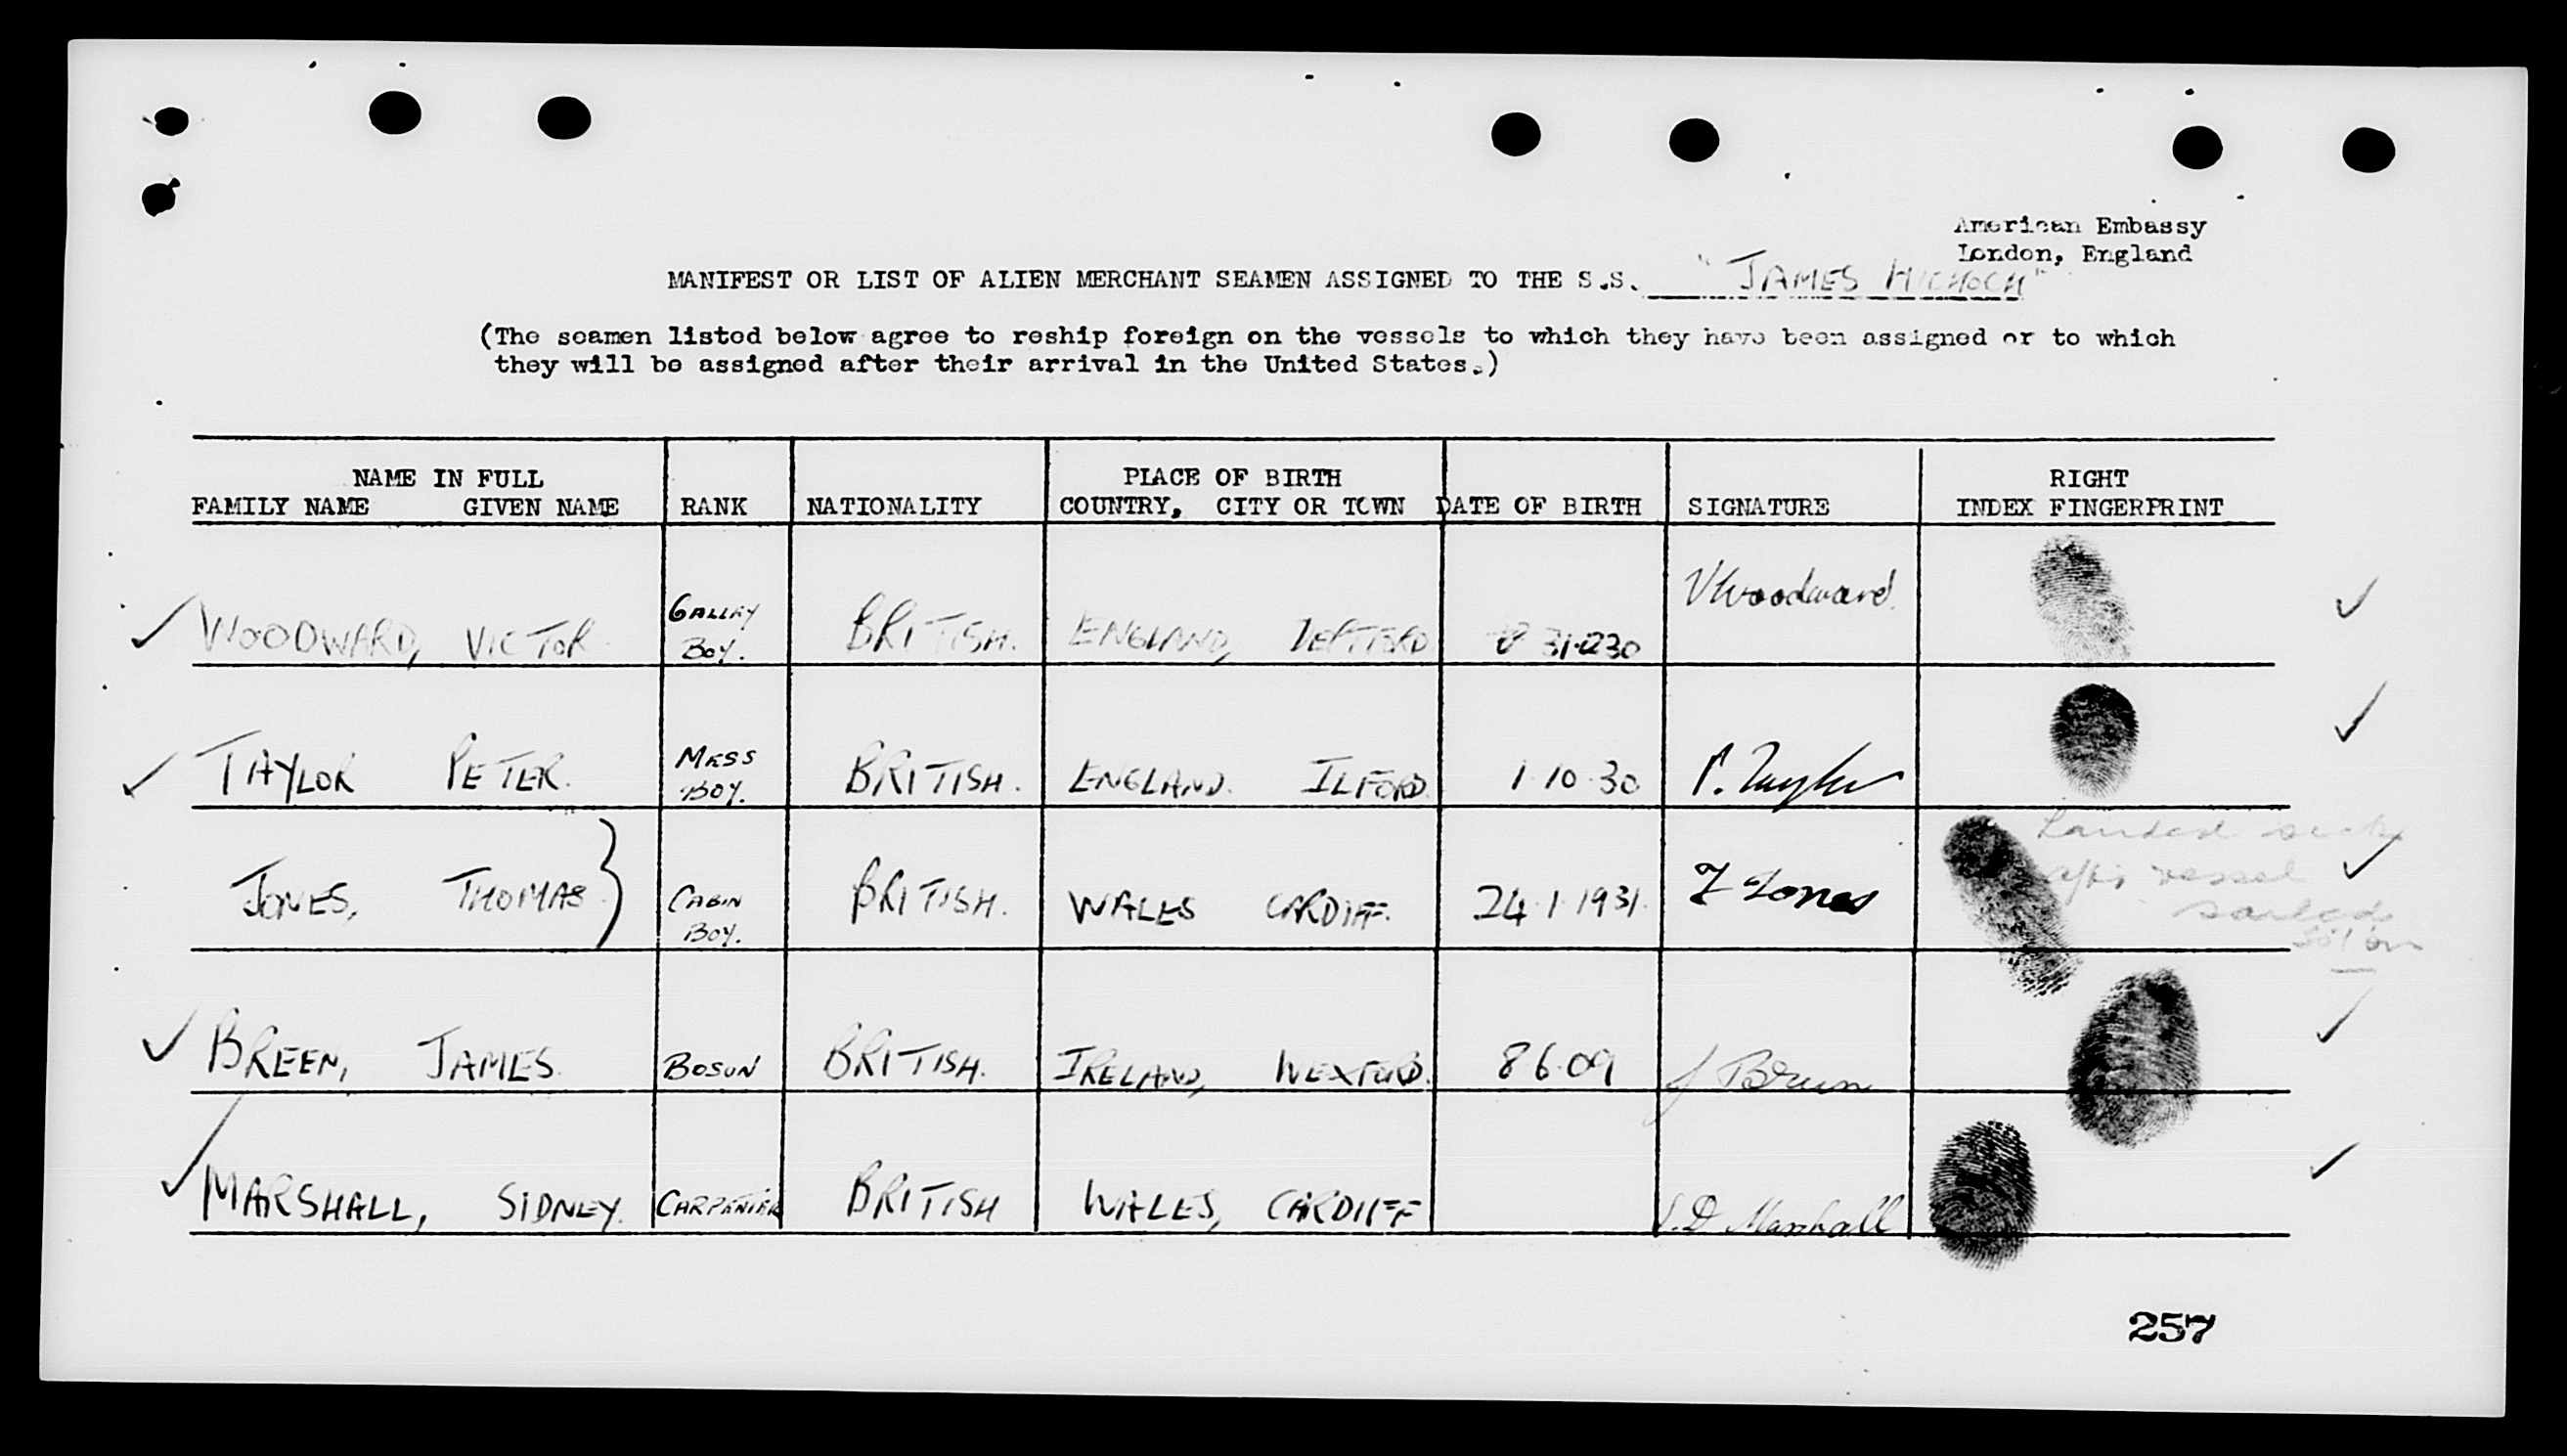 American Embassy
London, England
MANIFEST OR LIST OF ALIEN MERCHANT SEAMEN ASSIGNED TO THE S.S. "JAMES
(The seamen listed below agree to reship foreign on the vessels to which they have been assigned or to which
they will be assigned after their arrival in the United States.)
NAME IN FULL PLACE OF BIRTH RIGHT
FAMILY NAME GIVEN NAME RANK NATIONALITY COUNTRY, CITY OR TOWN DATE OF BIRTH SIGNATURE INDEX FINGERPRINT
WOODWARD, VICTOR GALLEY BOY. BRITISH. ENGLAND, DEPTFORD VWoodward.
TAYLOR PETER. MESS BOY. BRITISH. ENGLAND. ILFORD. 1.10.30 P. Taylor
JONES, THOMAS } CABIN BOY. BRITISH. WALES CARDIFF. 24.1.1931. T Jones
Landed
vessel
sailed
BREEN, JAMES. BOSUN BRITISH. IRELAND, WEXFORD. 8 6.09 J Breen
MARSHALL, SIDNEY. CARPENTER BRITISH WALES, CARDIFF S.D Marshall
257